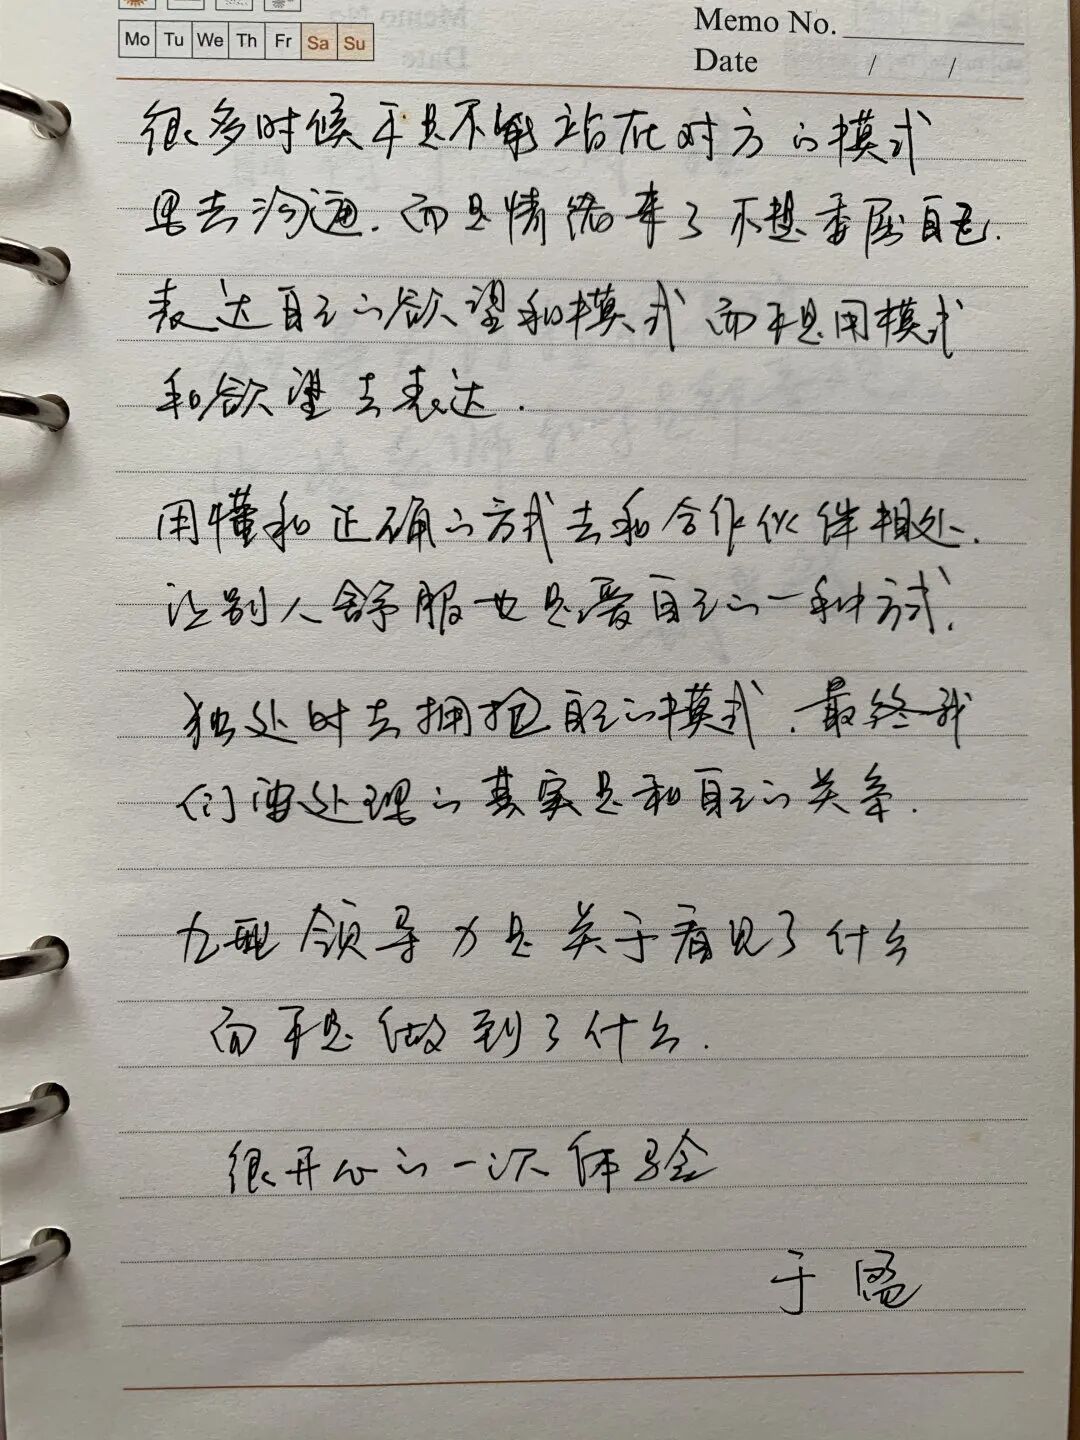 Mo Tu We Th Fr Sa Su
Memo No.
Date / /
很多时候不是不能站在对方的模式
里去沟通.而是情绪来了不想委屈自己.
表达自己的欲望和模式而不是用模式
和欲望去表达.
用懂和正确的方式去和合作伙伴相处.
让别人舒服也是爱自己的一种方式.
独处时去拥抱自己的模式.最终我
们要处理的其实是和自己的关系.
九型领导力是关于看见了什么
而不是做到了什么.
很开心的一次体验
于